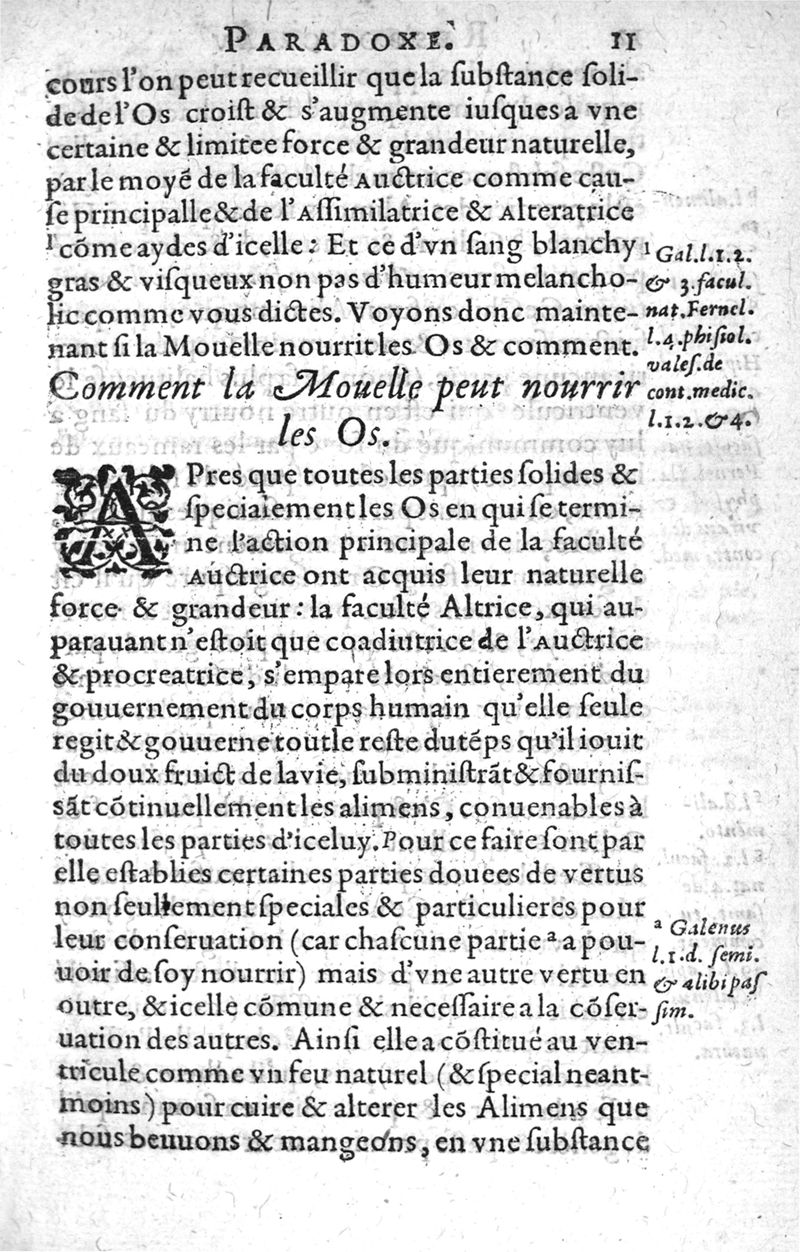 PARADOXE. 11
cours l'on peut recueillir que la ſubſtance ſoli-
de de l'Os croiſt & s'augmente iuſques a vne
certaine & limitee force & grandeur naturelle,
par le moyẽ de la faculté Auctrice comme cau-
ſe principalle & de l'Aſſimilatrice & Alteratrice
¹ cõme aydes d'icelle: Et ce d'vn ſang blanchy
gras & viſqueux non pas d'humeur melancho-
lic comme vous dictes. Voyons donc mainte-
nant ſi la Mouelle nourrit les Os & comment.
¹ Gal. l. 1. 2.
& 3. facul.
nat. Fernel.
l. 4. phiſiol.
valeſ. de
cont. medic.
l. 1. 2. & 4.
Comment la Mouelle peut nourrir
les Os.
APres que toutes les parties ſolides &
ſpecialement les Os en qui ſe termi-
ne l'action principale de la faculté
Auctrice ont acquis leur naturelle
force & grandeur: la faculté Altrice, qui au-
parauant n'eſtoit que coadiutrice de l'Auctrice
& procreatrice, s'empare lors entierement du
gouuernement du corps humain qu'elle ſeule
regit & gouuerne tout le reſte du tẽps qu'il iouit
du doux fruict de la vie, ſubminiſtrãt & fourniſ-
sãt cõtinuellement les alimens, conuenables à
toutes les parties d'iceluy. Pour ce faire ſont par
elle eſtablies certaines parties douees de vertus
non ſeullement ſpeciales & particulieres pour
leur conſeruation (car chaſcune partie ª a pou-
uoir de ſoy nourrir) mais d'vne autre vertu en
outre, & icelle cõmune & neceſſaire a la cõſer-
uation des autres. Ainſi elle a cõſtitué au ven-
tricule comme vn feu naturel (& ſpecial neant-
moins) pour cuire & alterer les Alimens que
nous beuuons & mangeons, en vne ſubſtance
ª Galenus
l. 1. d. ſemi.
& alibi paſ
ſim.